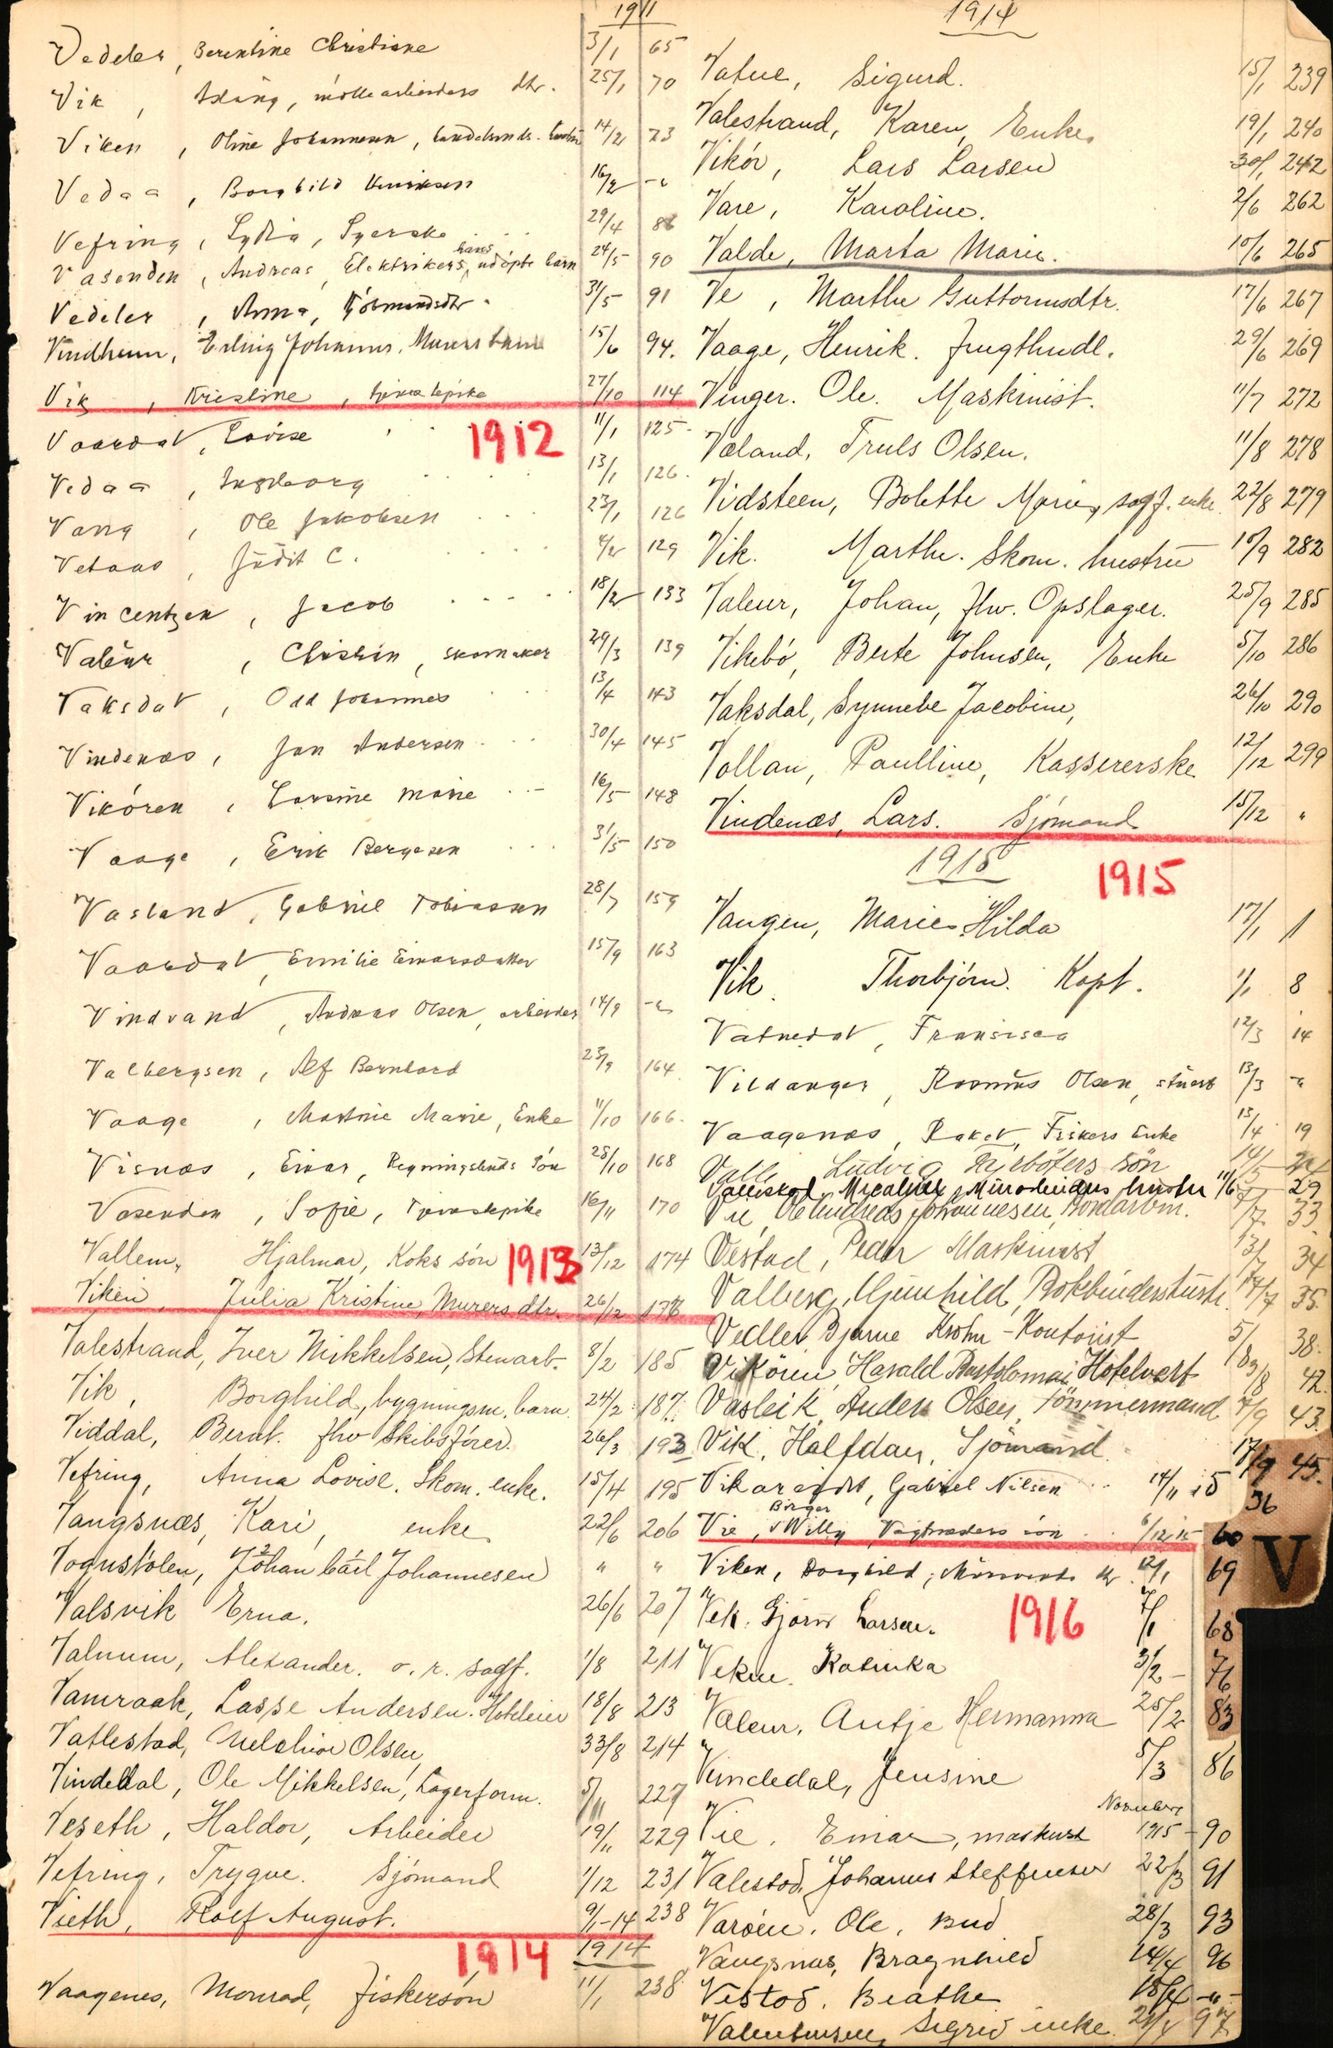 1911
Vedeler, Berentine Christiane 3/1 65
Vik, Aslaug, möllearbeiders dtr. 25/1 70
Viken, Oline Johannesen, 14/2 73
Vedaa, Borghild 16/2 -"-
Vefring, Lydia, Syerske 29/4 86
Vasenden, Andreas, Elektrikers hans udöpte barn 24/5 90
Vedeler, Anna, 31/5 91
Vindheim, Erling Johannes, Murers barn 15/6 94.
Vik, Kristine, tjenestepike 27/10 114
1912
Vaardal, Lovise 11/1 125
Vedaa, Ingeborg 13/1 126
Vang, Ole Jakobsen 23/1 126
Vetaas, Judit C. 4/2 129
Vincentzen, Jacob 18/2 133
Valeur, Christin, skomaker 29/3 139
Vaksdal, Odd Johannes 13/4 143
Vindenæs, Jan Andersen 30/4 145
Vikören, Lovine Marie 16/5 148
Vaage, Erik Bergesen 31/5 150
Vasland, Gabriel Tobiassen 28/7 159
Vaardal, Emilie Einarsdatter 15/9 163
Vindvand, Andreas Olsen, arbeider 14/9 -"-
Valbergsen, Alf Bernhard 23/9 164
Vaage, Martine Marie, Enke 11/10 166
Visnæs, Einar, Bygningssnds Sön 28/10 168
Vasenden, Sofie, Tjenestepike 16/11 170
Vallem, Hjalmar, Koks sön 13/12 174
1913
Viken, Julia Kristine, Murers dtr. 26/12 176
Valestrand, Iver Mikkelsen, Stewart. 8/2 185
Vik, Borghild, bygningsm. barn 24/2 187
Viddal, Bernt. fhv Skibsförer 26/3 193
Vefring, Anna Lovise. Skom. enke. 15/4 195
Vangsnæs, Kari, enke 22/6 206
Vognstölen, Johan Carl Johannesen " "
Valsvik Erna. 26/6 207
Valnum, Alexander. o. r. sagf. 1/8 211
Vamraak, Lasse Andersen. Hoteleier 18/8 213
Vatlestad, Melchior Olsen, 33/8 214
Vindedal, Ole Mikkelsen, Lagerform. 5/11 227
Veseth, Haldor, Arbeider 19/11 229
Vefring, Trygve. Sjömand 1/12 231
Vieth, Rolf August. 9/1-14 238
1914 1914
Vaagenes, Monrad, fiskersön 11/1 238
1914
Vatne, Sigurd. 15/1 239
Valestrand, Karen, Enke. 19/1 240
Vikör, Lars Larsen 30/1 242
Vare, Karoline. 2/6 262
Valde, Marta Marie. 10/6 265
Ve, Marthe Guttormsdtr. 17/6 267
Vaage, Henrik. Frugthndl. 29/6 269
Vinger. Ole. Maskinist. 11/7 272
Væland, Truls Olsen. 11/8 278
Vidsteen, Bolette Marie, sagf. enke. 22/8 279
Vik. Marthe. Skom. hustru 10/9 282
Valeur, Johan, fhv. Opslager. 25/9 285
Vikebö, Berte Johnsen, Enke 5/10 286
Vaksdal, Synneve Jacobine, 26/10 290
Vollan, Paulline, Kassererske 12/12 299
Vindenæs, Lars. Sjömand 15/12 "
1915 1915
Vangen, Marie Hilda 17/1 1
Vik. Thorbjörn. Kapt. 1/1 8
Vatnedal, Fransisca 12/3 14
Vildanger, Rasmus Olsen, stuert 13/3 -"-
Vaagenæs, Rakel, Fiskers Enke 15/4 19
Valle Ludvig sön 14/5
Vallestad, hustru 11/6 29
Vie, Ole Andreas Johannesen, 1/7 33
Vestad, Peder Maskinist 13/7 34
Valberg, Gunhild, Bokbinderhustr. 14/7 35
Vedler Bjarne Krohn-Kontorist 5/8 38
Vikören, Harald Bartolomai Hotelvert 42
Vasleik, Anders Olsen, Tömmermand 7/9 43
Vik, Halfdan, Sjömand 17/9 45
Vikaredt, Gabriel Nilsen 14/11 15 56
Vie, Birger Willy, sön 6/12 15 60
V
Viken, Borghild, dtr. 12/1 69
1916
Vek. Gjörn Larsen. 7/1 68
Veken. Katinka 3/2 76
Valeur. Antje Hermanna 25/2 83
Vindedal, Jensine 5/3 86
Vie. Einar, maskinst November 1915 90
Valestad, Johannes Steffensen 22/3 91
Varöen. Ole, Bud 28/3 93
Vangsnæs, Bragnhild 14/4 96
Vestad. Beathe 18/4 -"-
Valentinsen, Sigrid enke 21/4 97